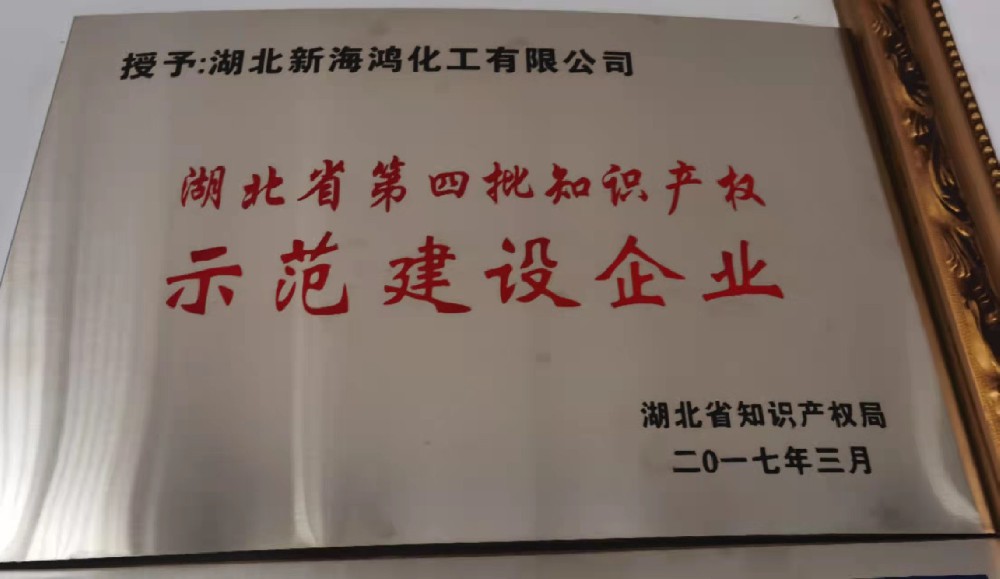 授予:湖北新海鸿化工有限公司
湖北省第四批知识产权
示范建设企业
湖北省知识产权局
二0一七年三月